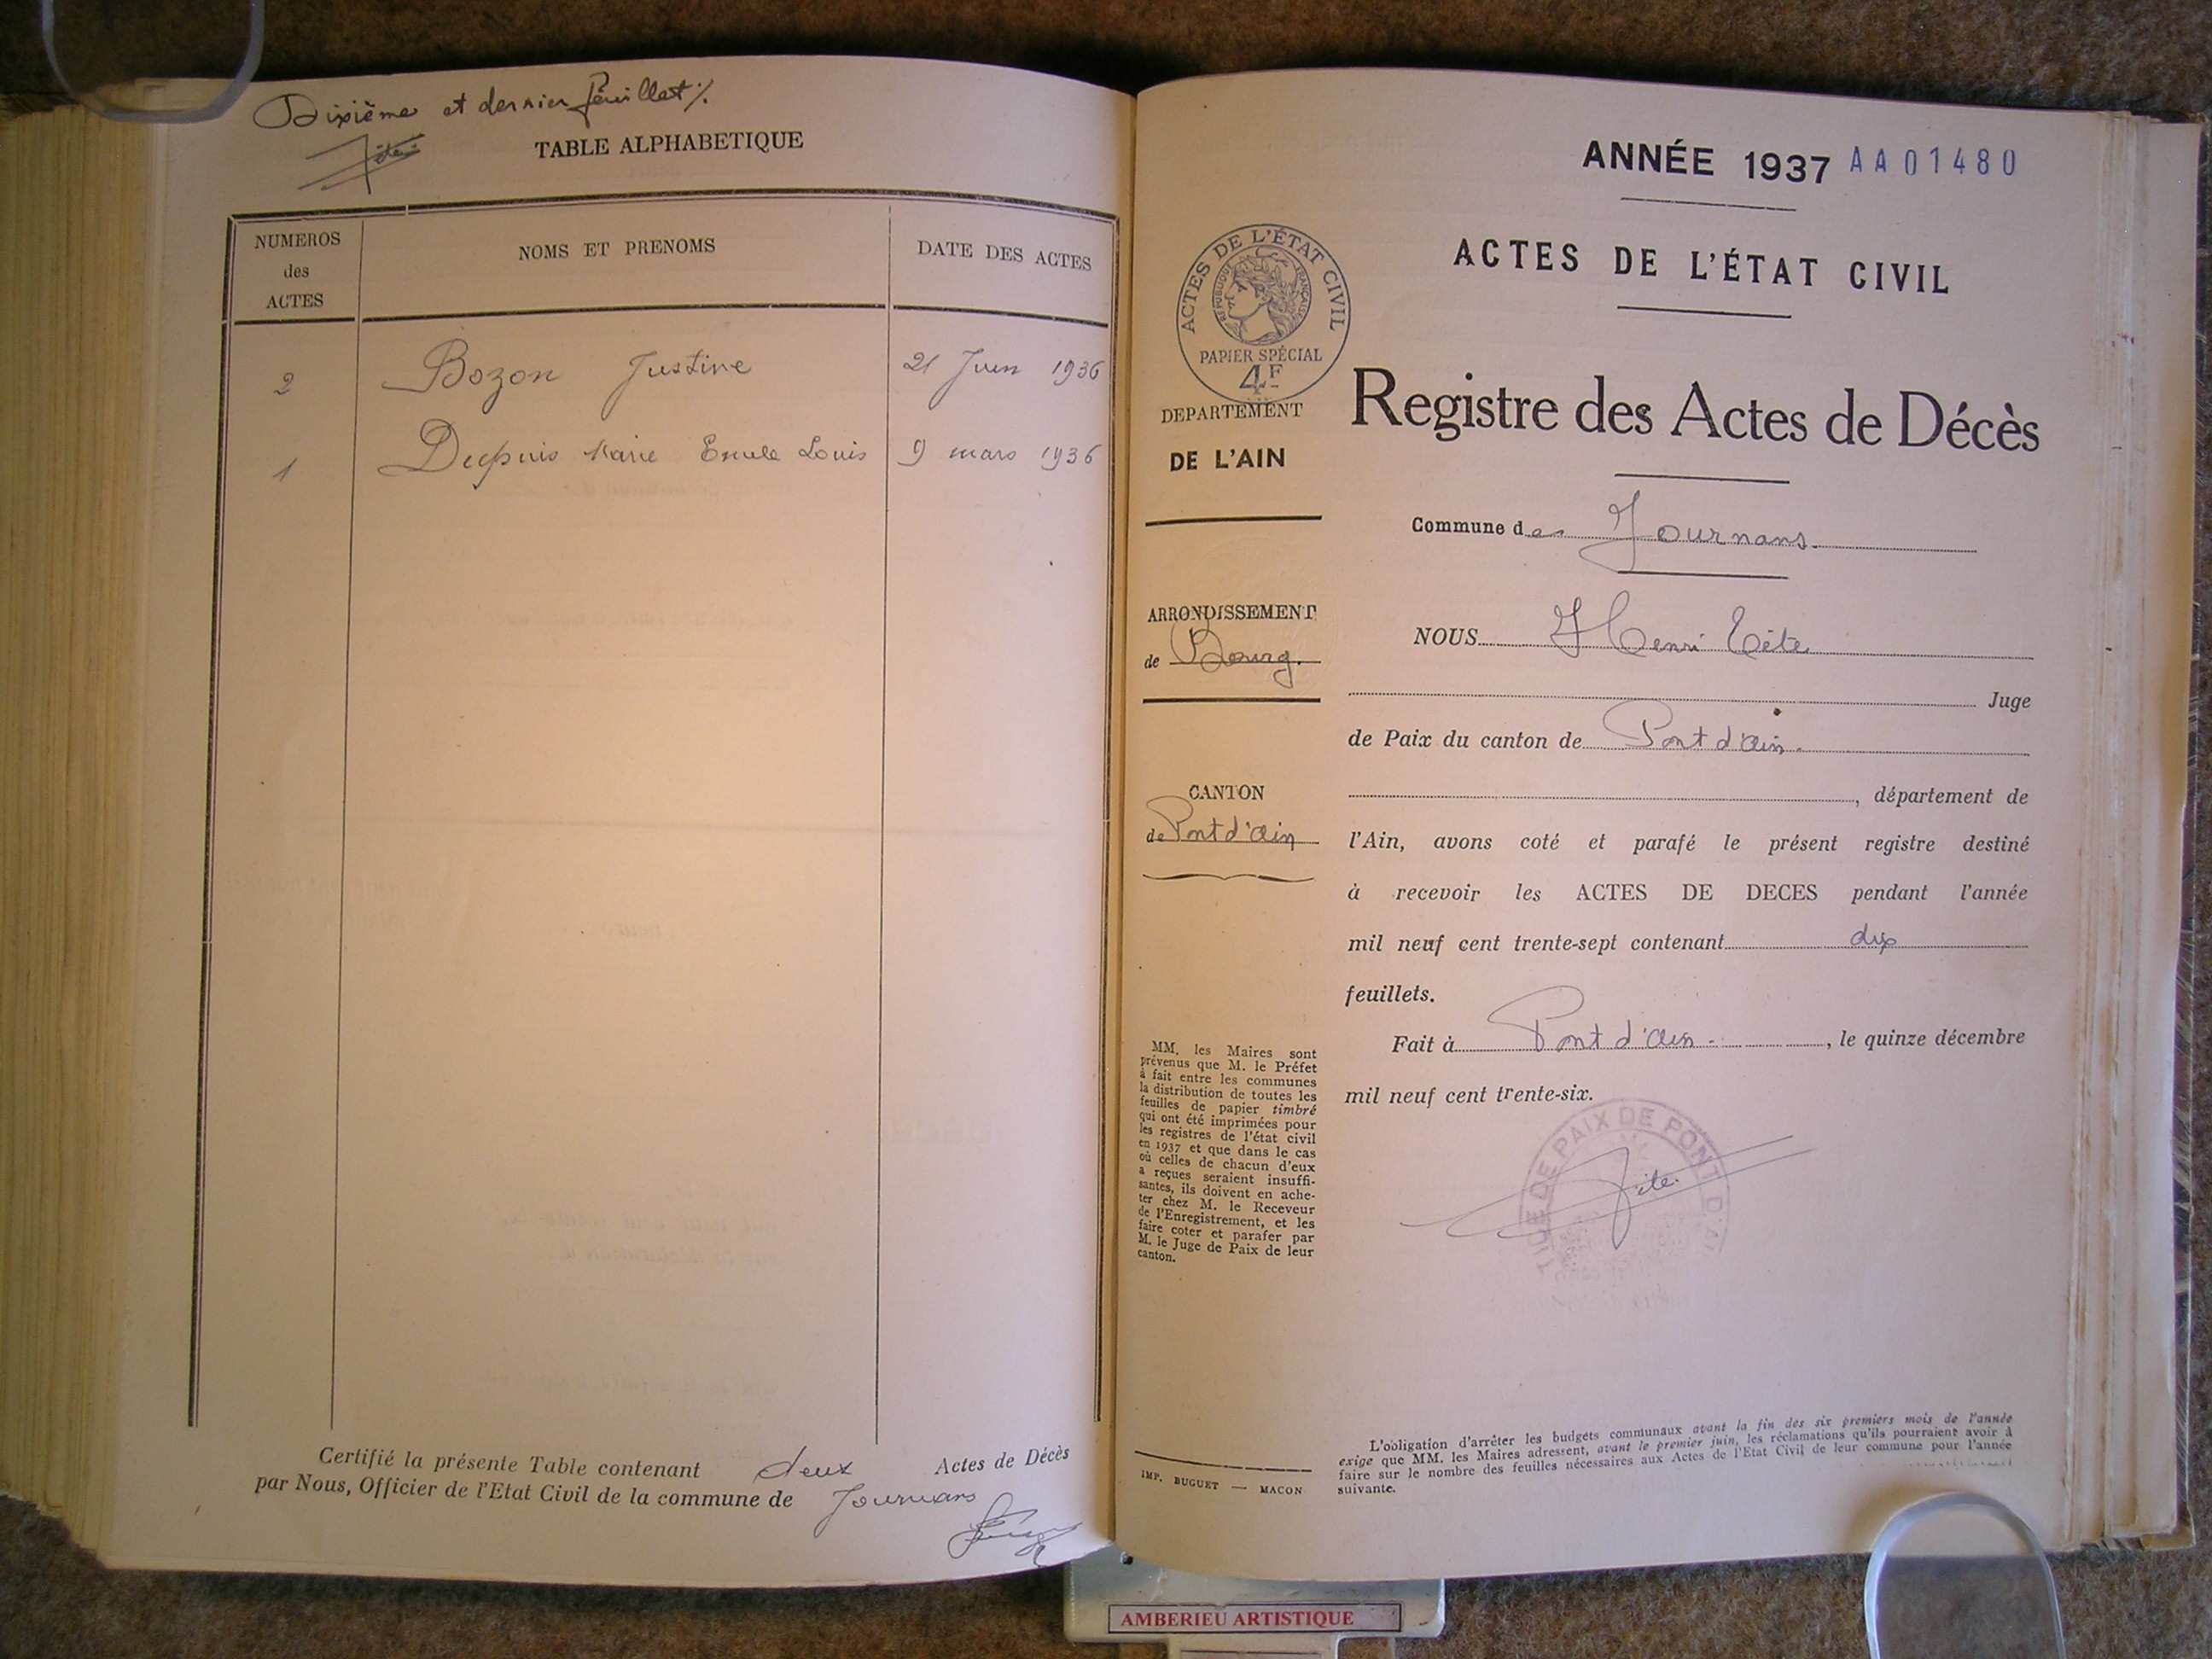 Dixième et dernier feuillet ./.
Tête
TABLE ALPHABETIQUE
NUMEROS
des
ACTES
NOMS ET PRENOMS
DATE DES ACTES
2 Bozon Justine 21 Juin 1936
1 Dupuis Marie Emile Louis 9 mars 1936
Certifié la présente Table contenant deux Actes de Décès
par Nous, Officier de l'Etat Civil de la commune de Journans
ANNÉE 1937 AA01480
ACTES DE L'ÉTAT CIVIL
ACTES DE L'ÉTAT CIVIL
RÉPUBLIQUE FRANÇAISE
PAPIER SPÉCIAL
4F
DEPARTEMENT
DE L'AIN
ARRONDISSEMENT
de Bourg.
CANTON
de Pont d'ain
MM. les Maires sont
prévenus que M. le Préfet
a fait entre les communes
la distribution de toutes les
feuilles de papier timbré
qui ont été imprimées pour
les registres de l'état civil
en 1937 et que dans le cas
où celles de chacun d'eux
a reçues seraient insuffi-
santes, ils doivent en ache-
ter chez M. le Receveur
de l'Enregistrement, et les
faire coter et parafer par
M. le Juge de Paix de leur
canton.
IMP. BUGUET — MACON
Registre des Actes de Décès
Commune de Journans.
NOUS Henri Tête
Juge
de Paix du canton de Pont d'ain.
, département de
l'Ain, avons coté et parafé le présent registre destiné
à recevoir les ACTES DE DECES pendant l'année
mil neuf cent trente-sept contenant dix
feuillets.
Fait à Pont d'ain. , le quinze décembre
mil neuf cent trente-six.
DE PAIX DE PONT D'AIN
Tête.
L'obligation d'arrêter les budgets communaux avant la fin des six premiers mois de l'année
exige que MM. les Maires adressent, avant le premier juin, les réclamations qu'ils pourraient avoir à
faire sur le nombre des feuilles nécessaires aux Actes de l'Etat Civil de leur commune pour l'année
suivante.
AMBERIEU ARTISTIQUE